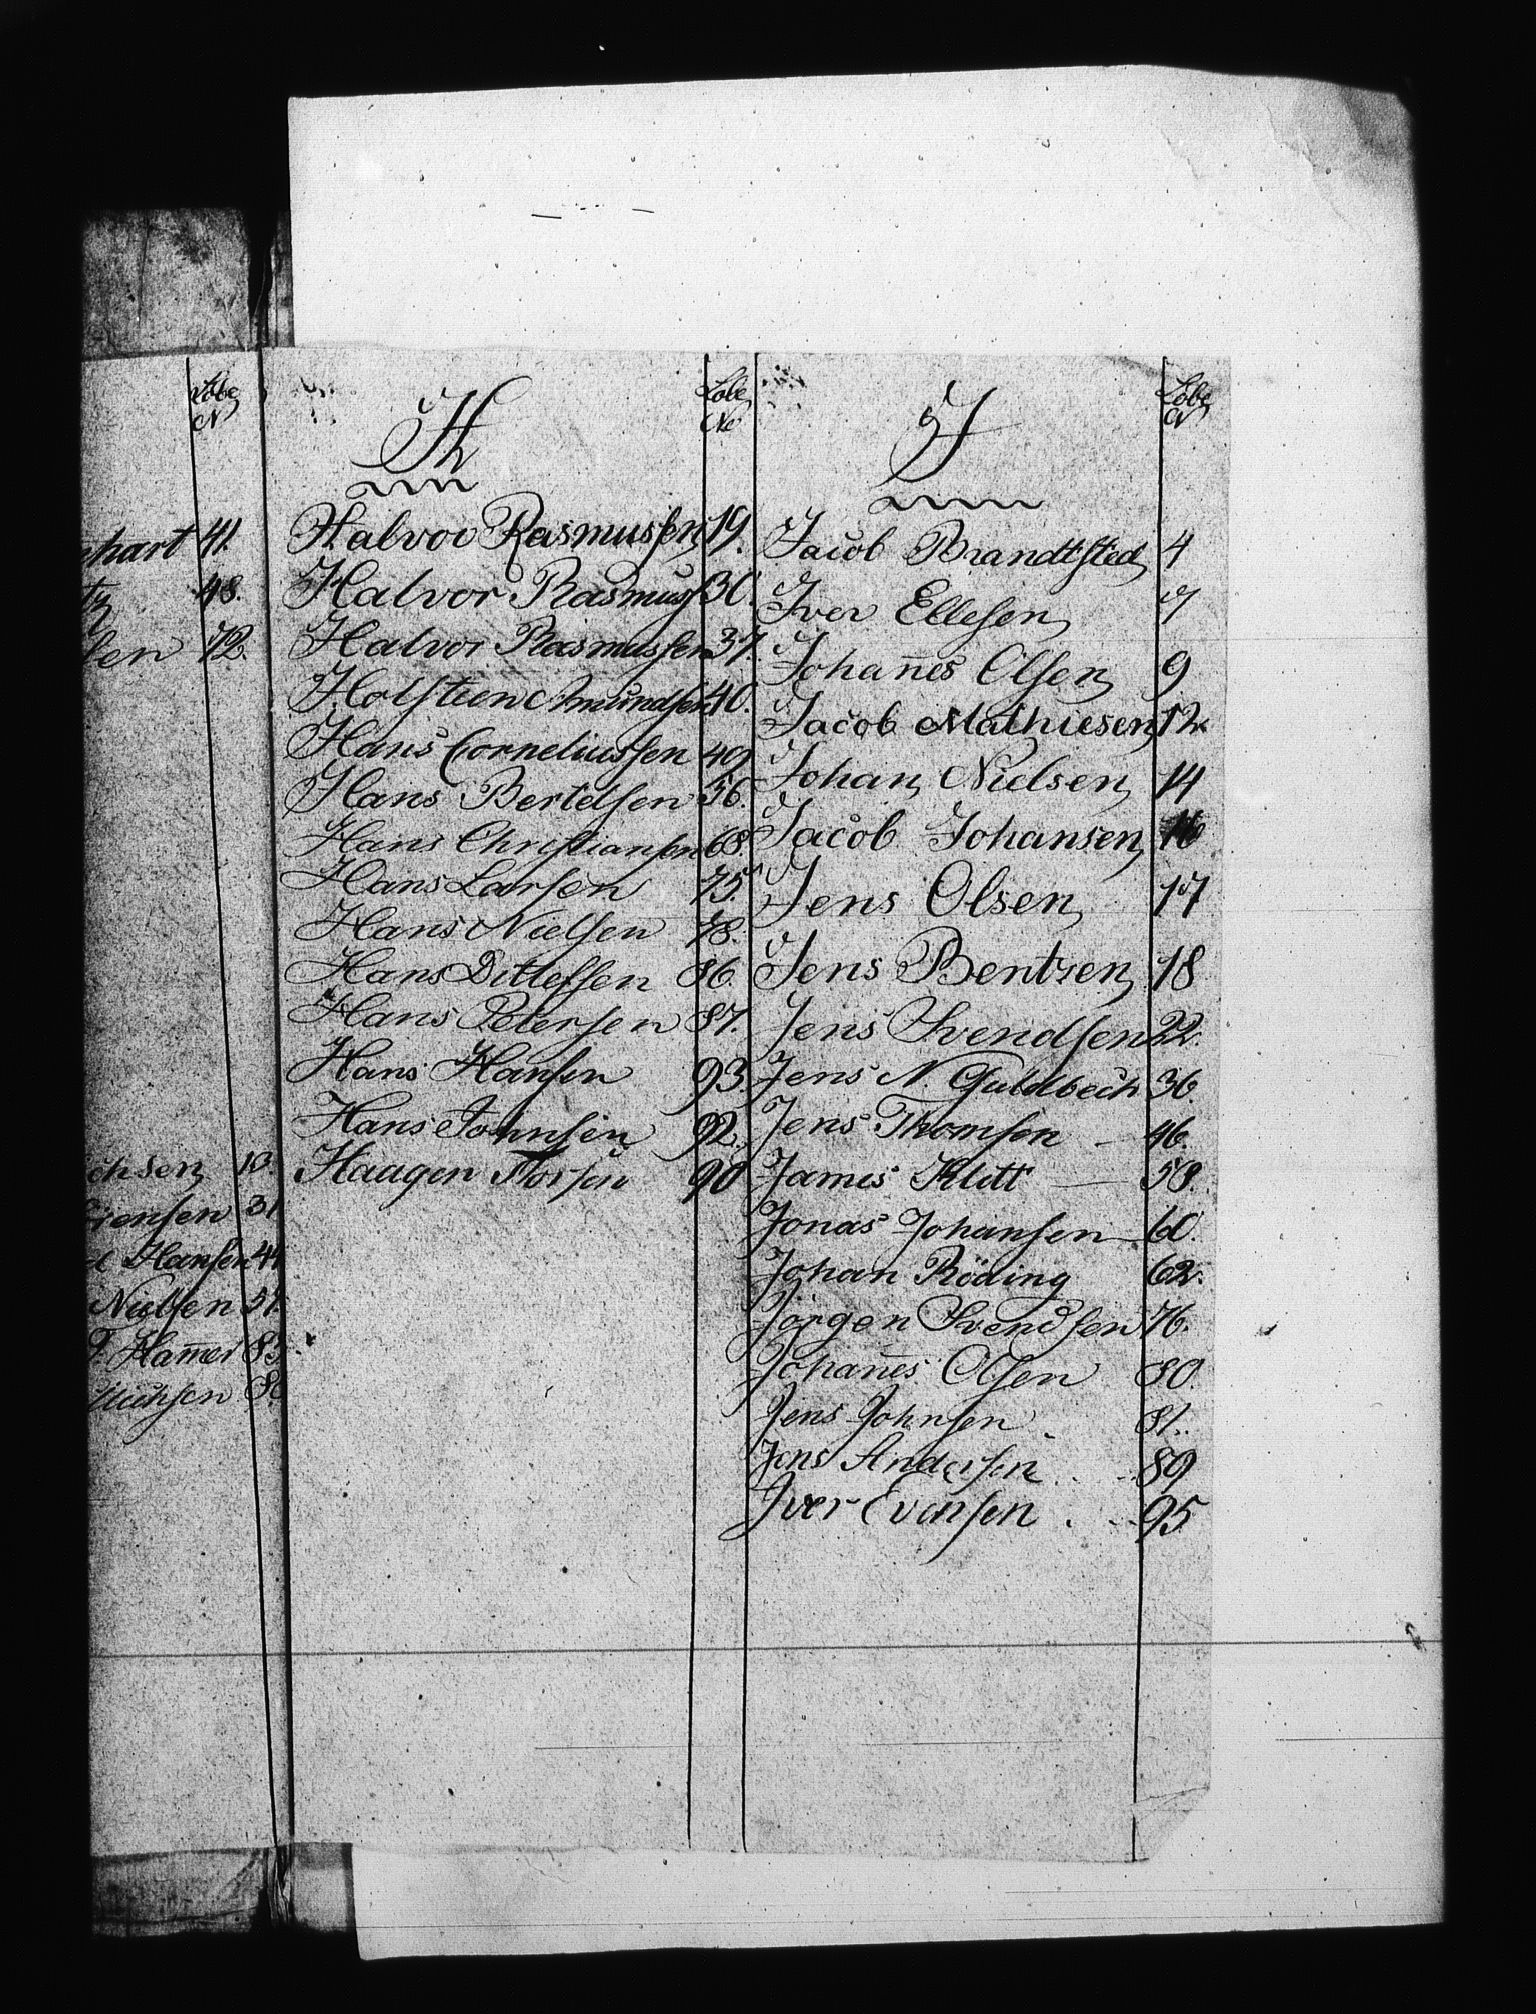 Løbe
N
hart 41.
48.
sen 72.
chsen 13
31
Hansen 44
Nielsen 57.
Ham̄er 83.
H
Løbe
No
Halvor Rasmussen 19.
Halvor Rasmuss 30.
Halvor Rasmussen 37.
Holsteen Amundsen 40.
Hans Corneliussen 49
Hans Bertelsen 56.
Hans Christiansen 68.
Hans Larsen 75.
Hans Nielsen 78.
Hans Ditlefsen 86.
Hans Petersen 87.
Hans Hansen 93.
Hans Johnsen 92.
Haagen 90
J
Løbe
N
Jacob Brandtsted 4
Iver Ellesen 7
Johan̄es Olsen 9
Jacob Mathiesen 12.
Johan Nielsen 14
Jacob Johansen 16
Jens Olsen 17
Jens Bentzen 18
Jens Svendsen 22.
Jens N. Guldbech 36.
Jens Thomsen - 46.
James Klitt - 58.
Jonas Johansen - 60.
Johan Röding 62.
Jørgen Svendsen 76.
Johan̄es Olsen 80.
Jens Johnsen 81.
Jens Andersen 89
Iver Evensen 95